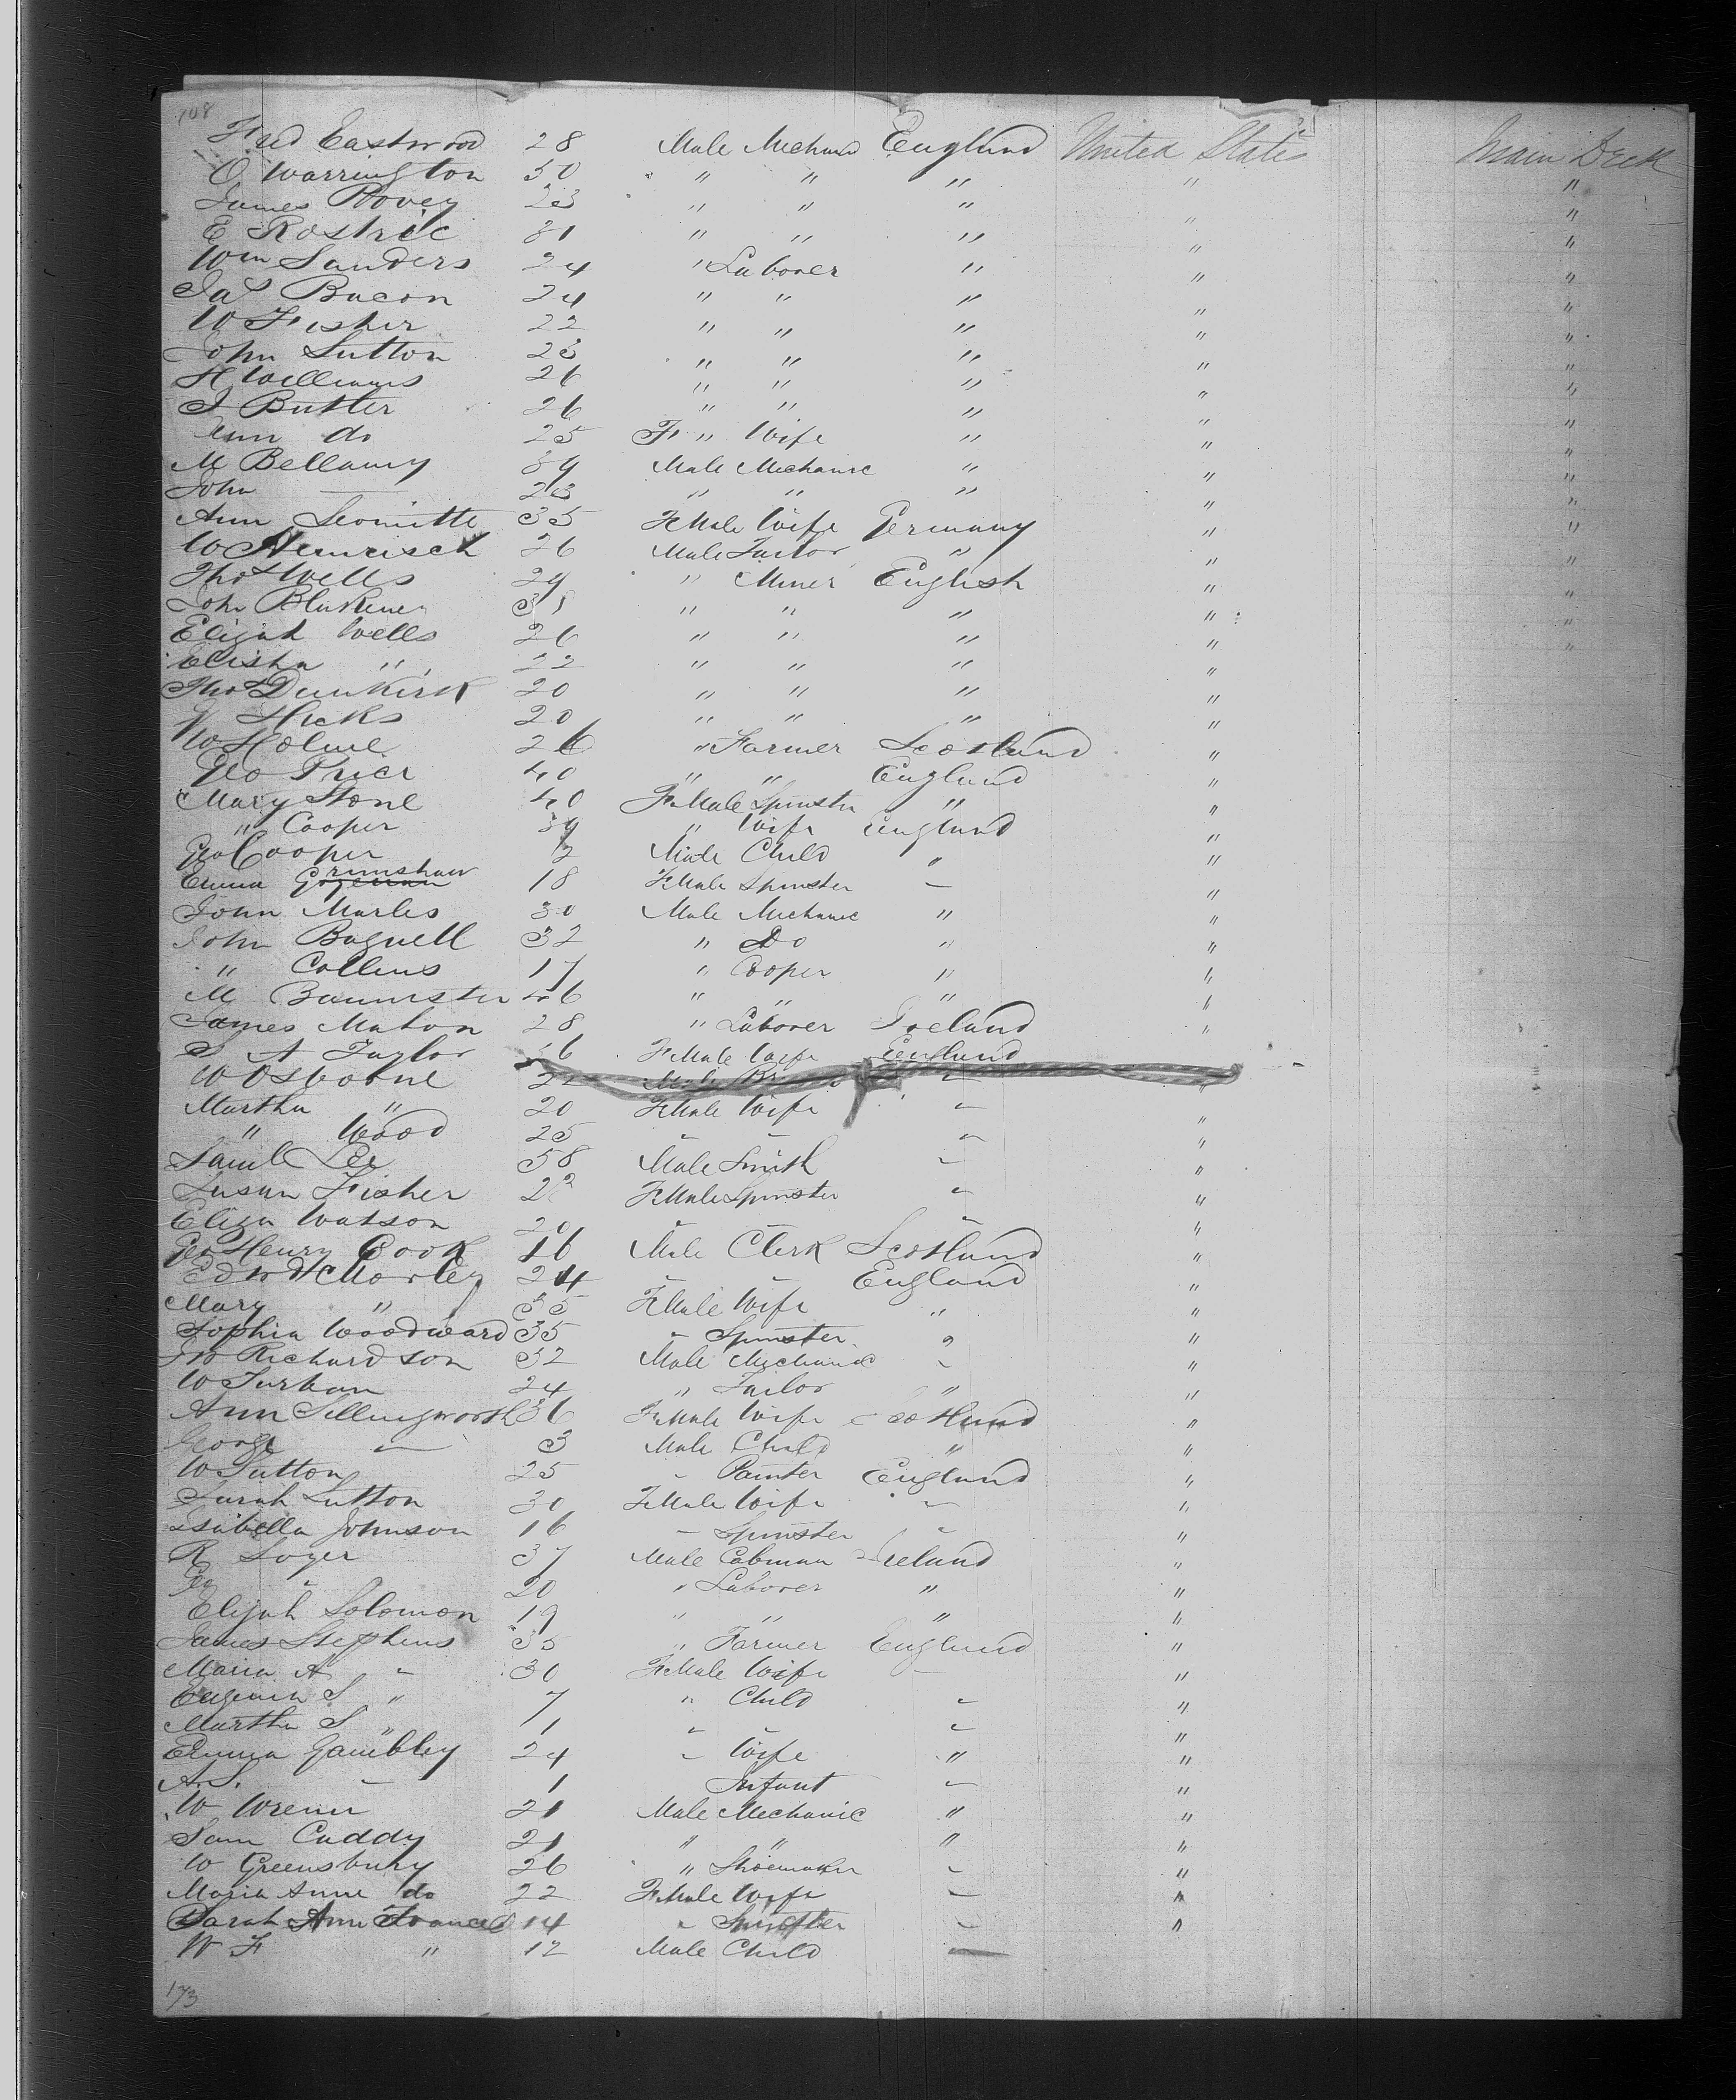 108
Fred Eastwood 28 Male Mechanic England United States Main Deck
O Warrington 30 " " " " "
James Povey 23 " " " " "
E Rostric 31 " " " " "
Wm Sanders 24 " Laborer " " "
Jas Bacon 24 " " " " "
W Fisher 22 " " " " "
John Sutton 23 " " " " "
H Williams 26 " " " " "
J Butler 26 " " " " "
Ann do 25 F " Wife " " "
M Bellamy 34 Male Mechanic " " "
John — 23 " " " " "
Ann 35 FMale Wife Germany " "
W Hemrisch 26 Male Tailor " " "
Thos Wells 29 " Miner English " "
John Blakener 38 " " " " "
Elijah Wells 26 " " " " "
Elisha " 22 " " " "
Thos Dunkirk 20 " " " "
Hicks 20 " " " "
W Holme 26 " Farmer Scotland "
Geo Price 40 " " England "
Mary Stone 40 FMale Spinster " "
" Cooper 39 " Wife England "
Geo Cooper 2 Male Child " "
Emma Grimshaw 18 FMale Spinster — "
John Marles 30 Male Mechanic " "
John Bagnell 32 " Do " "
" Collins 17 " Cooper " "
M Bannister 46 " " " "
James Mahon 28 " Laborer Ireland "
S A Taylor 36 FMale Wife England
W Osborne 22 Male " "
Martha " 20 FMale Wife " "
" Wood 25 " " " "
Saml Lee 58 Male Smith " "
Susan Fisher 22 FMale Spinster " "
Eliza Watson 20 " " " "
Geo Henry Cook 16 Male Clerk Scotland "
Edwd Morley 24 " " England "
Mary " 35 FMale Wife " "
Sophia Woodward 35 " Spinster " "
Jno Richardson 32 Male Mechanic " "
W Turban 24 " Tailor " "
Ann Sellingworth 36 FMale Wife Scotland "
George — 3 Male Child " "
W Sutton 25 " Painter England "
Sarah Sutton 30 FMale Wife " "
Isabella Johnson 16 " Spinster " "
R Soyer 37 Male Cabman Ireland "
Geo " 20 " Laborer " "
Elijah Solomon 19 " " " "
James Stephens 35 " Farmer England "
Maria A " 30 FMale Wife " "
Eugenia S " 7 " Child " "
Martha S " 1 " " "
Emma Gambley 24 " Wife " "
A.S. — 1 Infant " "
W Wrenn 21 Male Mechanic " "
Sam Caddy 21 " " " "
W Greensbury 26 " Shoemaker " "
Maria Anne do 22 FMale Wife " "
Sarah Ann Frances 14 " Spinster " "
W F " 12 Male Child —
173